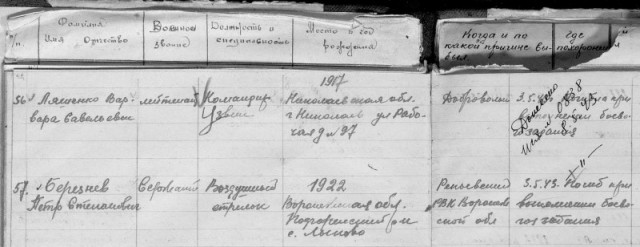 № п/п.
Фамилия
Имя Отчество
Воинское звание
Должность и специальность
Место и год рождения
Когда и по какой причине выбыл
Где похоронен
1917
56. Ляшенко Вар-
вара Савельевич
лейтенант
Командир
звена
Николаевская обл.
г Николаев ул Рабо-
чая д № 27
Доброволец
3.5.43 Погибла при
боево-
задания
Донесено
57. Березнев
Петр Степанович
Сержант
Воздушный
стрелок
1922
Воронежская обл.
Подгоренский р-н
с.
РВК Воронеж-
ской обл
3.5.43. Погиб при
выполнении боево-
го задания